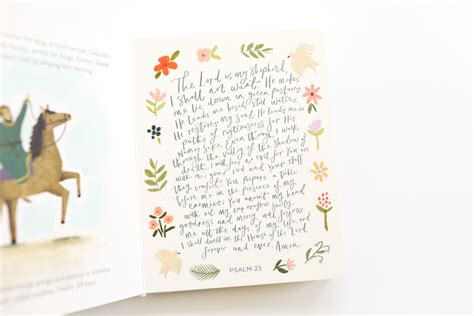 king of God's people. God told
forever. David
by singing and dancing.
songs and poems in worship
called psalms. Psalm 23 says:
The Lord is my shepherd,
I shall not want. He makes
me lie down in green pastures,
He leads me beside still waters
He restores my soul. He leads me
paths of righteousness for His
Name's sake. Even though I walk
through the valley of the shadow of
death I will fear no evil for You are
with me, your rod and your staff
they comfort. You prepare a table
before me in the presence of my
enemies. You anoint my head
with oil my cup overflows. Surely,
goodness and mercy will follow
me all the days of my life, and
I shall dwell in the House of the Lord
forever and ever. Amen.
PSALM 23